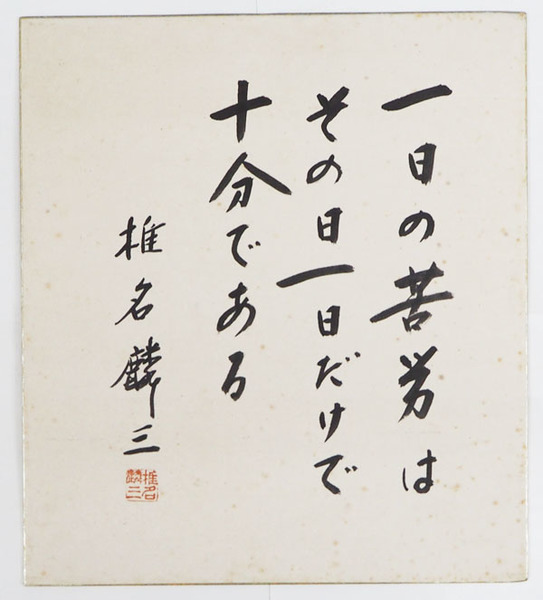 一日の苦労は
その日一日だけで
十分である
椎名麟三
椎名
麟三